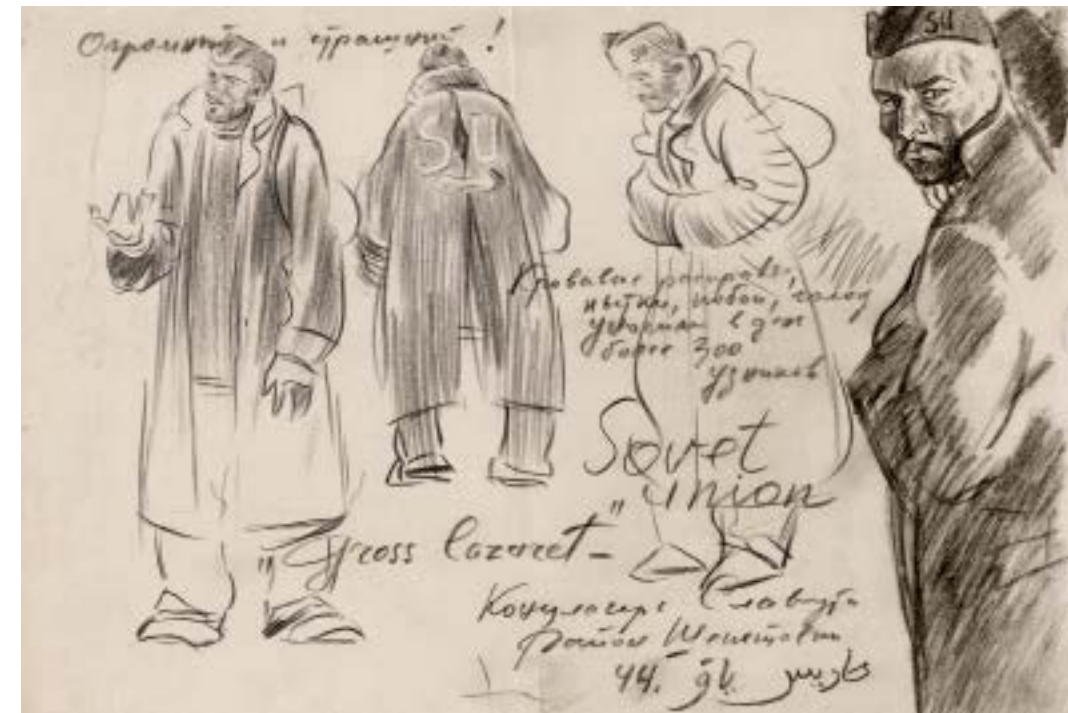 Огромный и страшный!
SU
SU
Кровавые расправы,
пытки, побои, голод
уносили в день
более 300
узников
Sovet
"Union
"Gross lazaret"–
Концлагерь Славута
район Шепетовки
44.